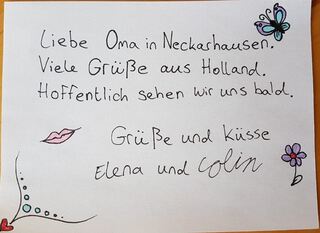 Liebe Oma in Neckarhausen.
Viele Grüße aus Holland.
Hoffentlich sehen wir uns bald.
Grüße und küsse
Elena und Colin